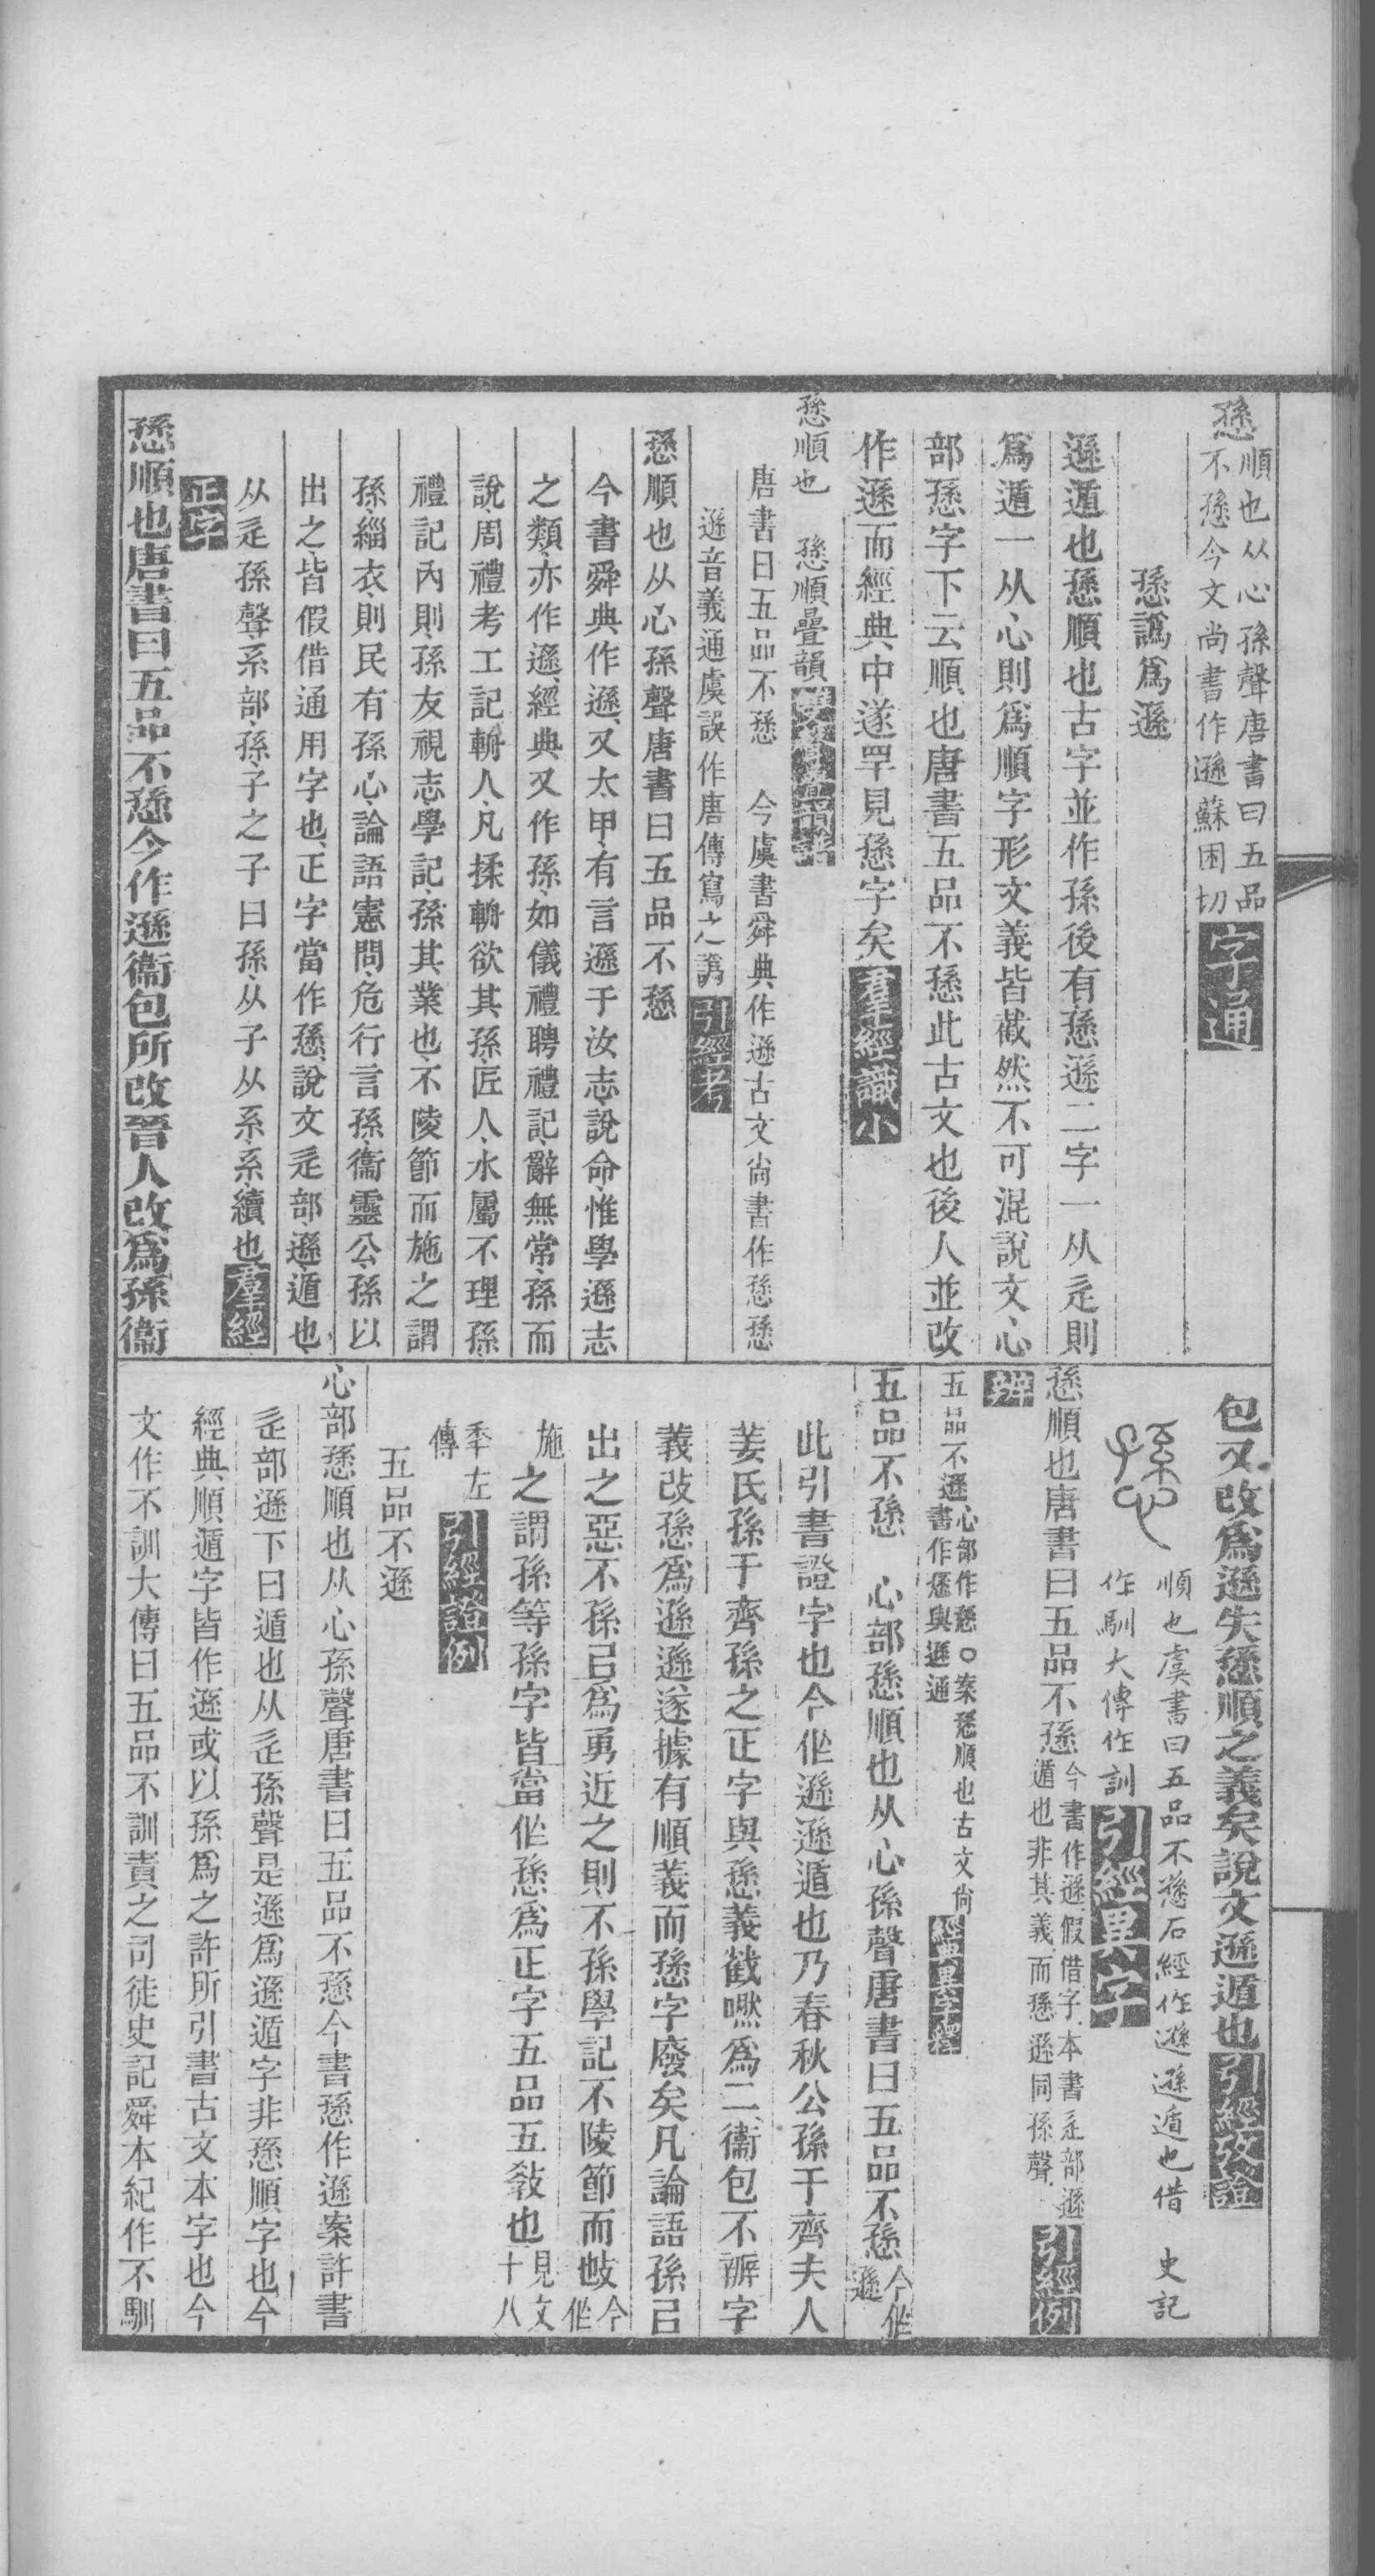 愻順也从心孫聲唐書曰五品
不愻今文尚書作遜蘇困切字通
愻譌爲遜
遜遁也愻順也古字並作孫後有愻遜二字一从辵則
爲遁一从心則爲順字形文義皆截然不可混說文心
部愻字下云順也唐書五品不愻此古文也後人並改
作遜而經典中遂罕見愻字矣羣經識小
愻順也 愻順疊韻
唐書曰五品不愻 今虞書舜典作遜古文尚書作愻愻
遜音義通虞誤作唐傳寫之譌引經考
愻順也从心孫聲唐書曰五品不愻
今書舜典作遜又太甲有言遜于汝志說命惟學遜志
之類亦作遜經典又作孫如儀禮聘禮記辭無常孫而
說周禮考工記輈人凡揉輈欲其孫匠人水屬不理孫
禮記內則孫友視志學記孫其業也不陵節而施之謂
孫緇衣則民有孫心論語憲問危行言孫衞靈公孫以
出之皆假借通用字也正字當作愻說文辵部遜遁也
从辵孫聲系部孫子之子曰孫从子从系系續也羣經
正字
愻順也唐書曰五品不愻今作遜衞包所改晉人改爲孫衞
包又改爲遜失愻順之義矣說文遜遁也引經攷證
順也虞書曰五品不愻石經作遜遜遁也借 史記
作馴大傳作訓引經異字
愻順也唐書曰五品不愻今書作遜假借字本書辵部遜
遁也非其義而愻遜同孫聲引經例
辨
五品不遜心部作愻○案愻順也古文尚
書作愻與遜通
五品不愻 心部愻順也从心孫聲唐書曰五品不愻今作
遜
此引書證字也今作遜遜遁也乃春秋公孫于齊夫人
姜氏孫于齊孫之正字與愻義截嘫爲二衞包不辨字
義改愻爲遜遜遂據有順義而愻字廢矣凡論語孫㠯
出之惡不孫㠯爲勇近之則不孫學記不陵節而㪰今作
施之謂孫等孫字皆當作愻爲正字五品五敎也見文
十八
秊左
傳引經證例
五品不遜
心部愻順也从心孫聲唐書曰五品不愻今書愻作遜案許書
辵部遜下曰遁也从辵孫聲是遜爲遜遁字非愻順字也今
經典順遁字皆作遜或以孫爲之許所引書古文本字也今
文作不訓大傳曰五品不訓責之司徒史記舜本紀作不馴